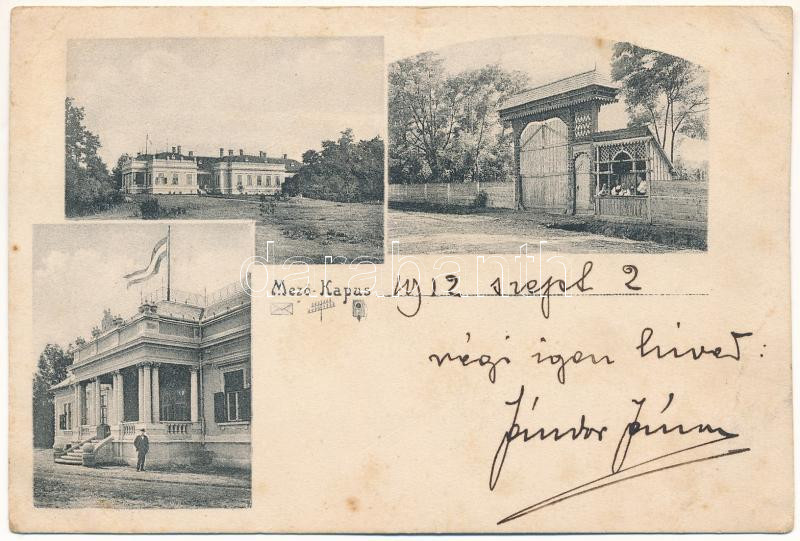 Mező-Kapus 1912 szept 2
régi igen híved:
Sándor János
darabanth